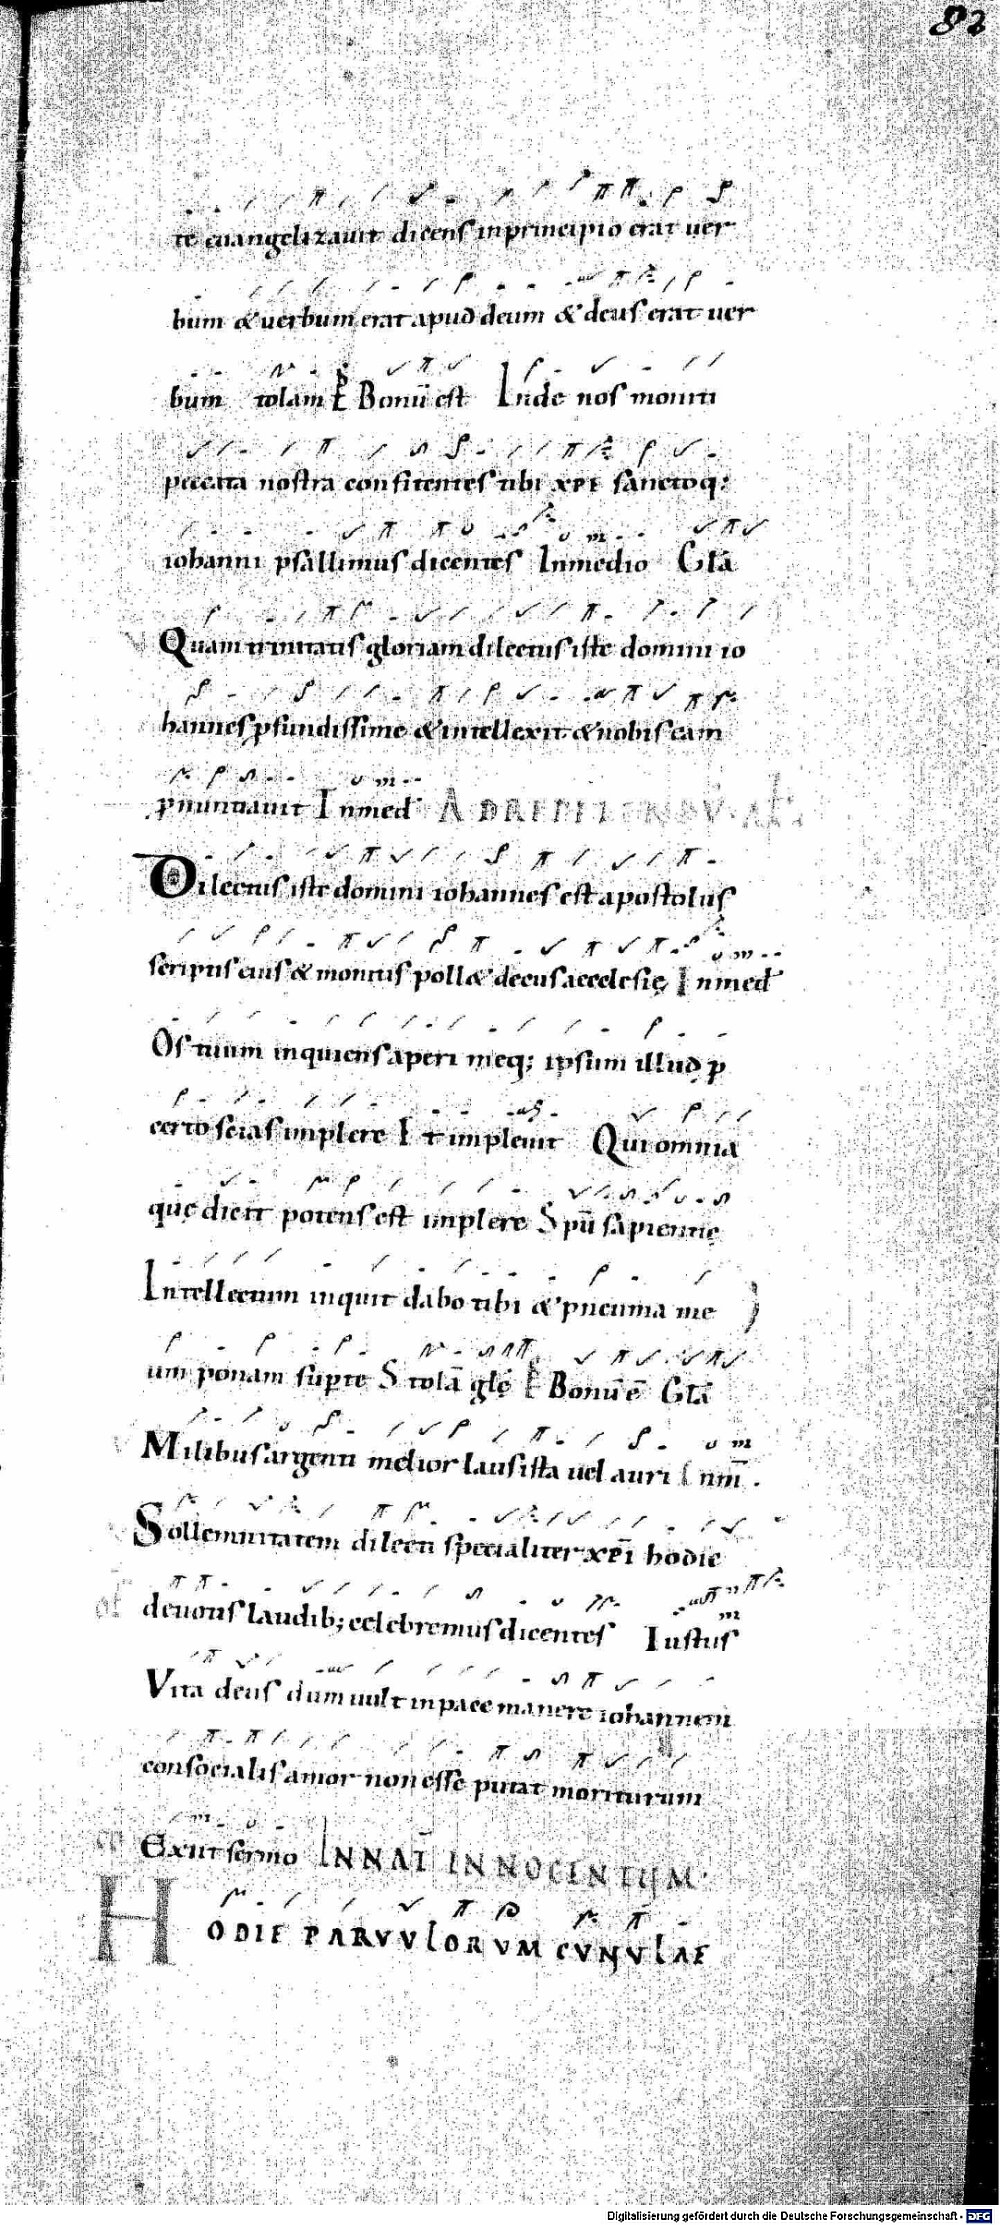 82
te euangelizauit dicens inprincipio erat uer
bum & uerbum erat apud deum & deus erat uer
bum stolam Bonū est Inde nos moniti
peccata nostra confitentes tibi xpi sanctoq;
iohanni psallimus dicentes Inmedio Glā
Quam trinitatis gloriam dilectus iste domini io
hannes pfundissime & intellexit & nobis eam
pnuntiauit Inmed AD REPETENDŪ.
Dilectus iste domini iohannes est apostolus
scriptis cuius & monitis pollæ decus aecclesię Inmed
Os tuum inquiens aperi meq; ipsum illud p
certo scias implere Et impleuit Qui omnia
quę dicit potens est implere Spū sapientię
Intellectum inquit dabo tibi & pneuma me
um ponam supte Stolā glę Bonū ē Glā
Milibus argenti melior laus ista uel auri Inm̄.
Sollemnitatem dilecti specialiter xpī hodie
deuotis laudib; celebremus dicentes Iustus
Vita deus dum uult inpace manere iohannem
consocialis amor non esse putat moriturum
Exiit sermo IN NAT̄ INNOCENTIUM.
HODIE PARVVLORVM CVNVLAE
Digitalisierung gefördert durch die Deutsche Forschungsgemeinschaft - DFG